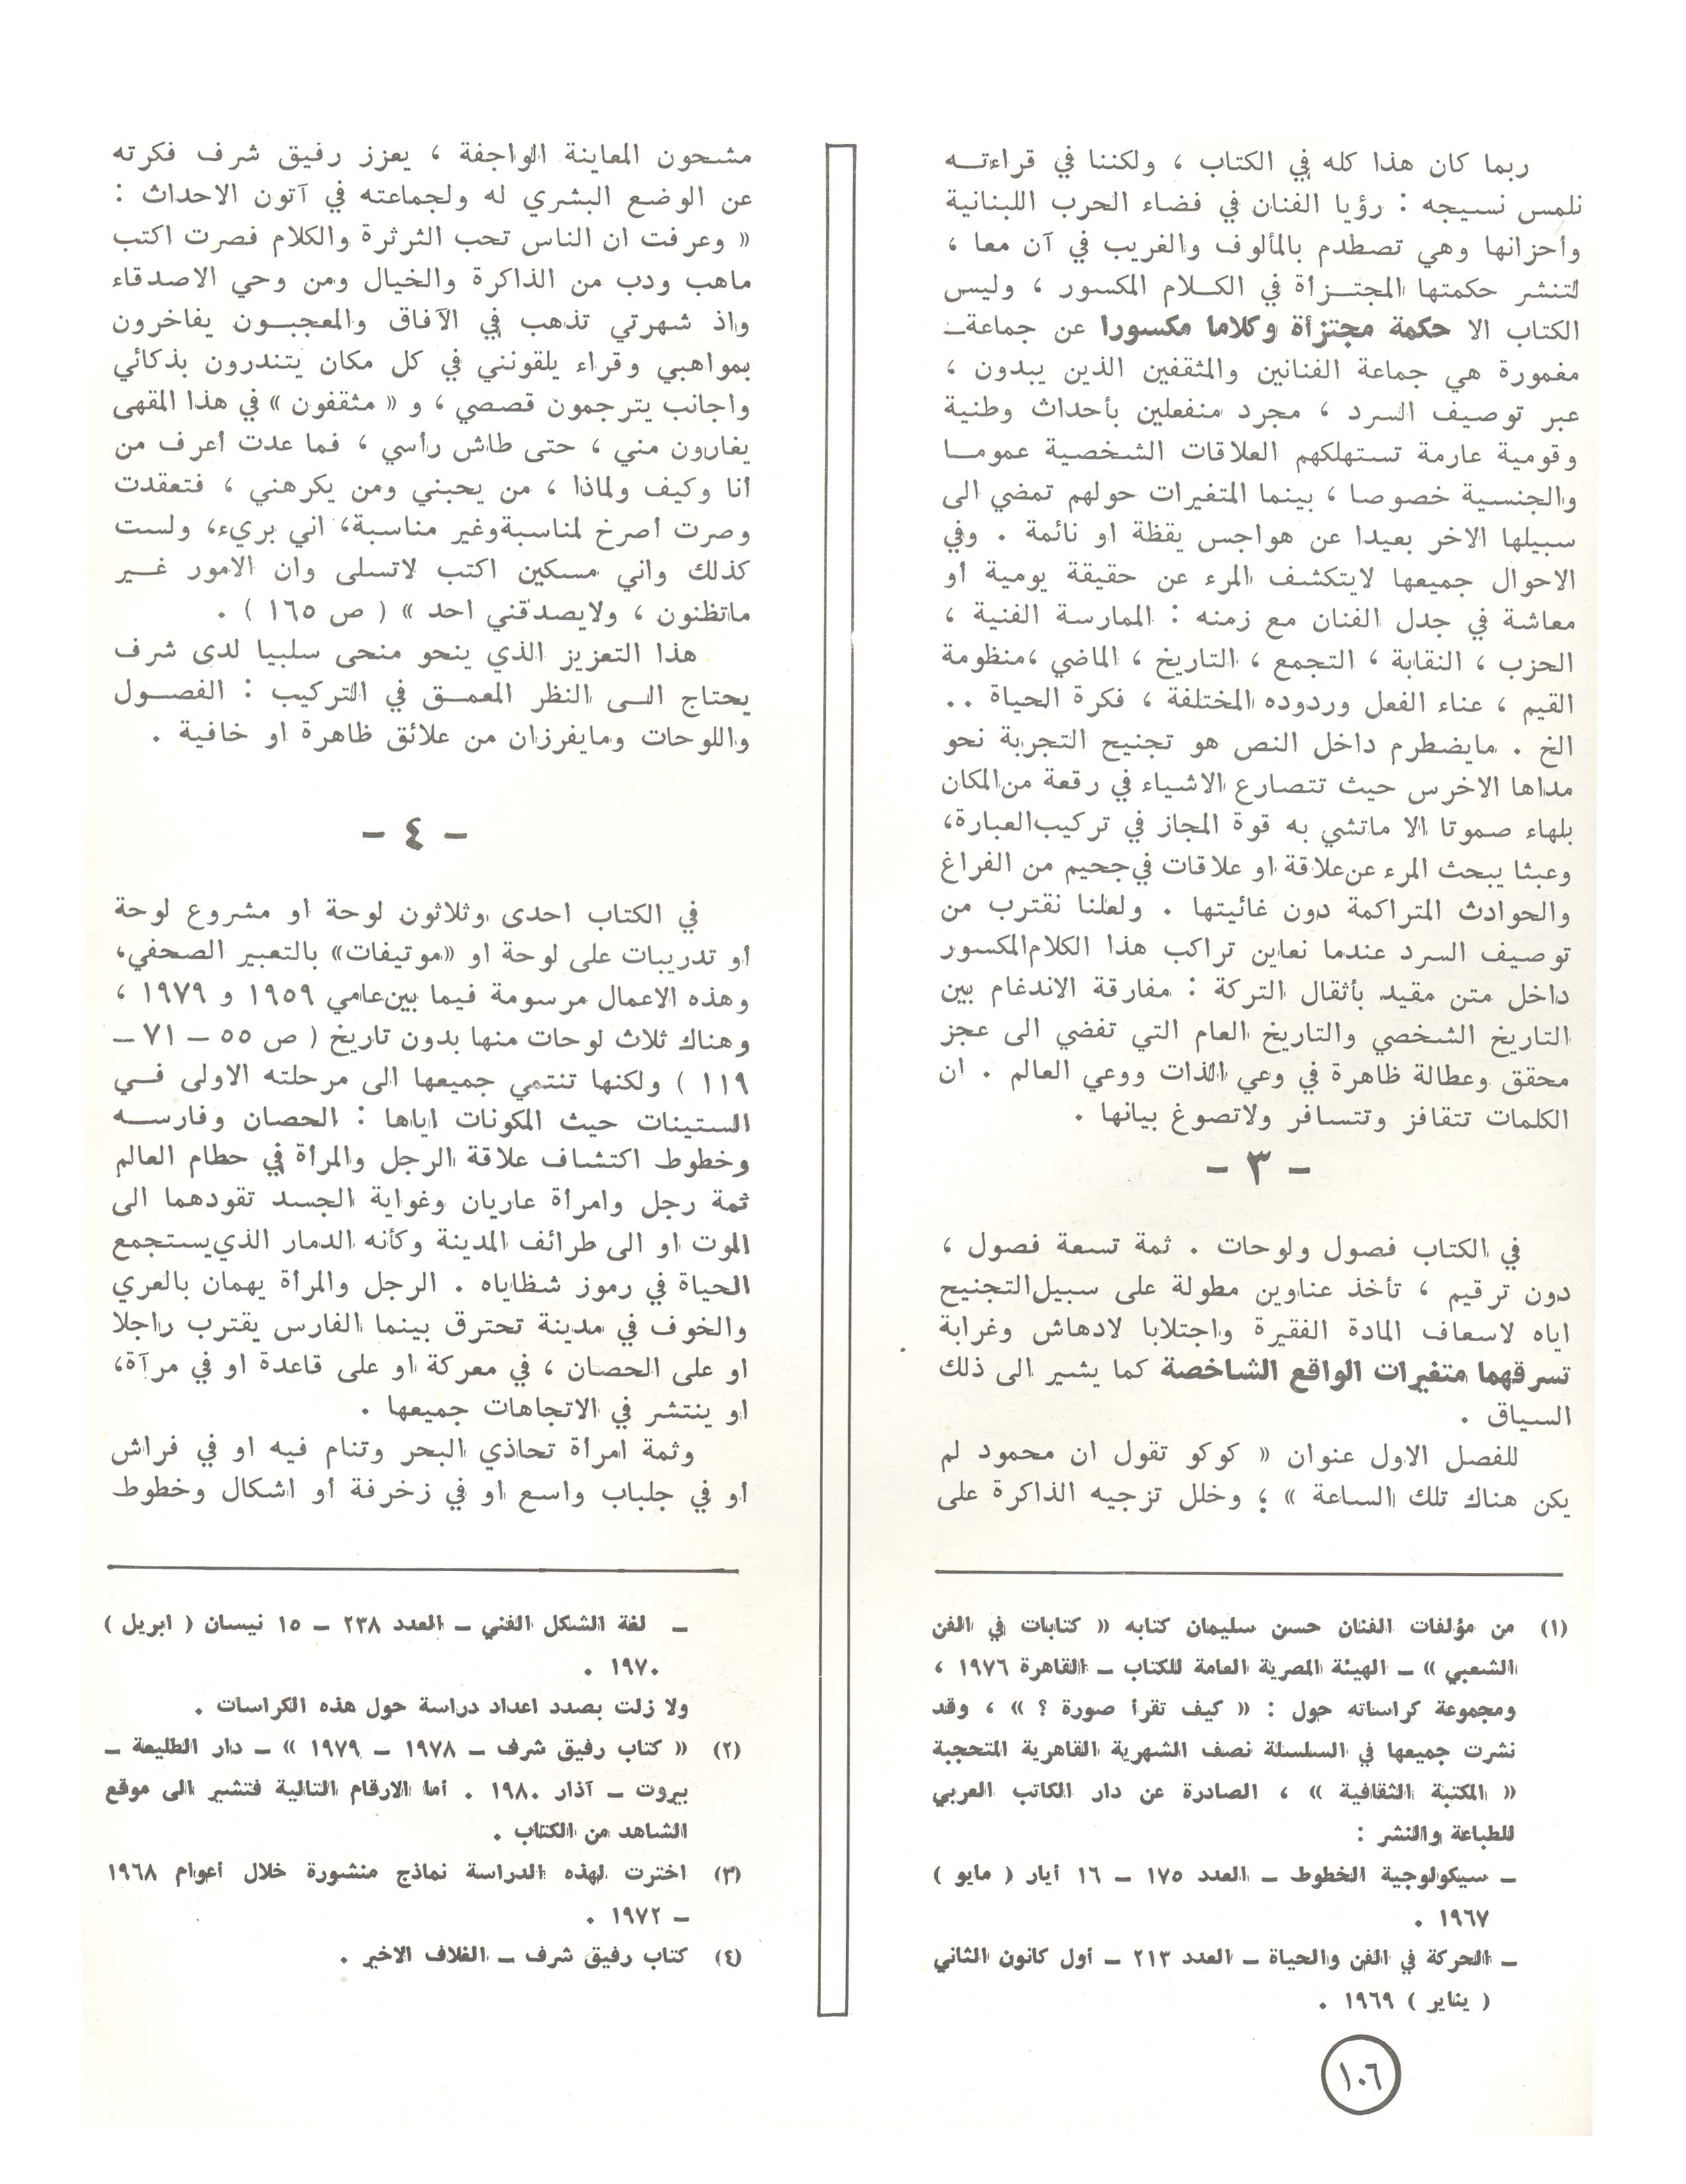 ربما كان هذا كله في الكتاب ، ولكننا في قراءته
نلمس نسيجه : رؤيا الفنان في فضاء الحرب اللبنانية
وأحزانها وهي تصطدم بالمألوف والغريب في آن معا ،
لتنشر حكمتها المجتزأة في الكلام المكسور ، وليس
الكتاب الا حكمة مجتزأة وكلاما مكسورا عن جماعة
مغمورة هي جماعة الفنانين والمثقفين الذين يبدون ،
عبر توصيف السرد ، مجرد منفعلين بأحداث وطنية
وقومية عارمة تستهلكهم العلاقات الشخصية عموما
والجنسية خصوصا ، بينما المتغيرات حولهم تمضي الى
سبيلها الاخر بعيدا عن هواجس يقظة او نائمة . وفي
الاحوال جميعها لايتكشف المرء عن حقيقة يومية أو
معاشة في جدل الفنان مع زمنه : الممارسة الفنية ،
الحزب ، النقابة ، التجمع ، التاريخ ، الماضي ،منظومة
القيم ، عناء الفعل وردوده المختلفة ، فكرة الحياة ..
الخ . مايضطرم داخل النص هو تجنيح التجربة نحو
مداها الاخرس حيث تتصارع الاشياء في رقعة من المكان
بلهاء صموتا الا ماتشي به قوة المجاز في تركيب العبارة،
وعبثا يبحث المرء عن علاقة او علاقات في جحيم من الفراغ
والحوادث المتراكمة دون غائيتها . ولعلنا نقترب من
توصيف السرد عندما نعاين تراكب هذا الكلام المكسور
داخل متن مقيد بأثقال التركة : مفارقة الاندغام بين
التاريخ الشخصي والتاريخ العام التي تفضي الى عجز
محقق وعطالة ظاهرة في وعي الذات ووعي العالم . ان
الكلمات تتقافز وتتسافر ولاتصوغ بيانها .
- ٣ -
في الكتاب فصول ولوحات . ثمة تسعة فصول ،
دون ترقيم ، تأخذ عناوين مطولة على سبيل التجنيح
اياه لاسعاف المادة الفقيرة واجتلابا لادهاش وغرابة
تسرقهما متغيرات الواقع الشاخصة كما يشير الى ذلك
السياق .
للفصل الاول عنوان « كوكو تقول ان محمود لم
يكن هناك تلك الساعة » ؛ وخلل تزجيه الذاكرة على
(١) من مؤلفات الفنان حسن سليمان كتابه « كتابات في الفن
الشعبي » ـ الهيئة المصرية العامة للكتاب ـ القاهرة ١٩٧٦ ،
ومجموعة كراساته حول : « كيف تقرأ صورة ؟ » ، وقد
نشرت جميعها في السلسلة نصف الشهرية القاهرية المتحجبة
« المكتبة الثقافية » ، الصادرة عن دار الكاتب العربي
للطباعة والنشر :
ـ سيكولوجية الخطوط ـ العدد ١٧٥ ـ ١٦ أيار ( مايو )
١٩٦٧ .
ـ الحركة في الفن والحياة ـ العدد ٢١٣ ـ أول كانون الثاني
( يناير ) ١٩٦٩ .
مشحون المعاينة الواجفة ، يعزز رفيق شرف فكرته
عن الوضع البشري له ولجماعته في آتون الاحداث :
« وعرفت ان الناس تحب الثرثرة والكلام فصرت اكتب
ماهب ودب من الذاكرة والخيال ومن وحي الاصدقاء
واذ شهرتي تذهب في الآفاق والمعجبون يفاخرون
بمواهبي وقراء يلقونني في كل مكان يتندرون بذكائي
واجانب يترجمون قصصي ، و « مثقفون » في هذا المقهى
يغارون مني ، حتى طاش رأسي ، فما عدت أعرف من
أنا وكيف ولماذا ، من يحبني ومن يكرهني ، فتعقدت
وصرت أصرخ لمناسبة وغير مناسبة، اني بريء، ولست
كذلك واني مسكين اكتب لاتسلى وان الامور غير
ماتظنون ، ولايصدقني احد » ( ص ١٦٥ ) .
هذا التعزيز الذي ينحو منحى سلبيا لدى شرف
يحتاج الى النظر المعمق في التركيب : الفصول
واللوحات ومايفرزان من علائق ظاهرة او خافية .
- ٤ -
في الكتاب احدى وثلاثون لوحة او مشروع لوحة
أو تدريبات على لوحة او «موتيفات» بالتعبير الصحفي،
وهذه الاعمال مرسومة فيما بين عامي ١٩٥٩ و ١٩٧٩ ،
وهناك ثلاث لوحات منها بدون تاريخ ( ص ٥٥ ـ ٧١ ـ
١١٩ ) ولكنها تنتمي جميعها الى مرحلته الاولى في
الستينات حيث المكونات اياها : الحصان وفارسه
وخطوط اكتشاف علاقة الرجل والمرأة في حطام العالم
ثمة رجل وامرأة عاريان وغواية الجسد تقودهما الى
الموت او الى طرائف المدينة وكأنه الدمار الذي يستجمع
الحياة في رموز شظاياه . الرجل والمرأة يهمان بالعري
والخوف في مدينة تحترق بينما الفارس يقترب راجلا
او على الحصان ، في معركة او على قاعدة او في مرآة،
او ينتشر في الاتجاهات جميعها .
وثمة امرأة تحاذي البحر وتنام فيه او في فراش
أو في جلباب واسع او في زخرفة أو اشكال وخطوط
ـ لغة الشكل الفني ـ العدد ٢٣٨ ـ ١٥ نيسان ( ابريل )
١٩٧٠ .
ولا زلت بصدد اعداد دراسة حول هذه الكراسات .
(٢) « كتاب رفيق شرف ـ ١٩٧٨ ـ ١٩٧٩ » ـ دار الطليعة ـ
بيروت ـ آذار ١٩٨٠ . أما الارقام التالية فتشير الى موقع
الشاهد من الكتاب .
(٣) اخترت لهذه الدراسة نماذج منشورة خلال أعوام ١٩٦٨
ـ ١٩٧٢ .
(٤) كتاب رفيق شرف ـ الغلاف الاخير .
١٠٦